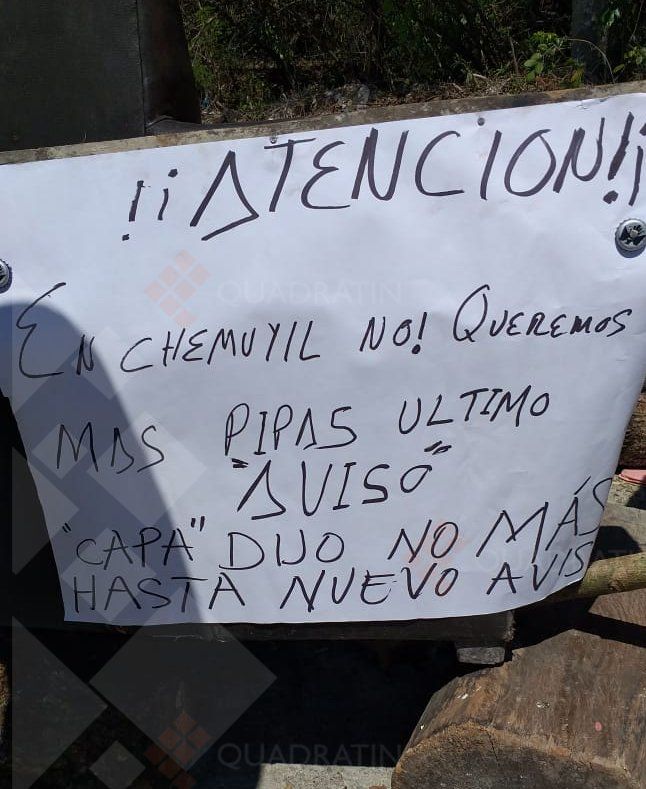 ¡¡ATENCION!!
EN CHEMUYIL NO! QUEREMOS
MAS PIPAS ULTIMO
"AVISO"
"CAPA" DIJO NO MÁS
HASTA NUEVO AVIS
QUADRATIN
QUADRATIN
QUADRATIN